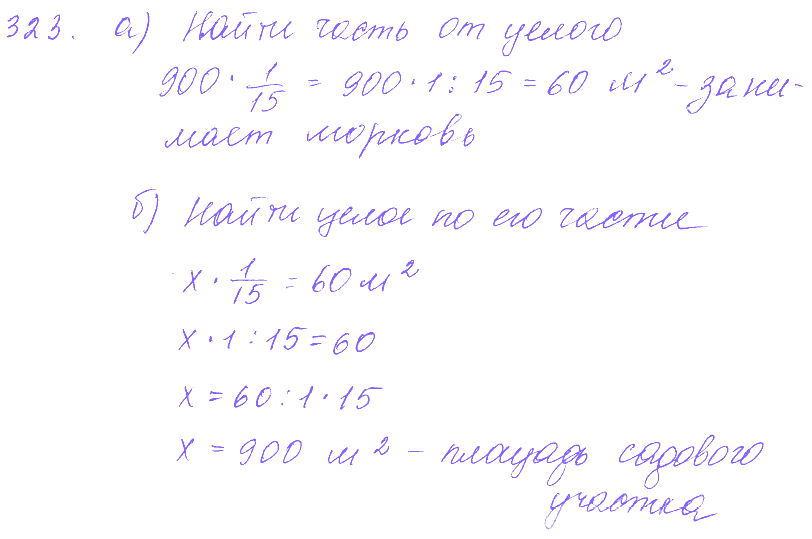 323. а) Найти часть от целого
900 · 1/15 = 900 · 1 : 15 = 60 м² - зани-
мает морковь
б) Найти целое по его части
x · 1/15 = 60 м²
x · 1 : 15 = 60
x = 60 : 1 · 15
x = 900 м² - площадь садового
участка